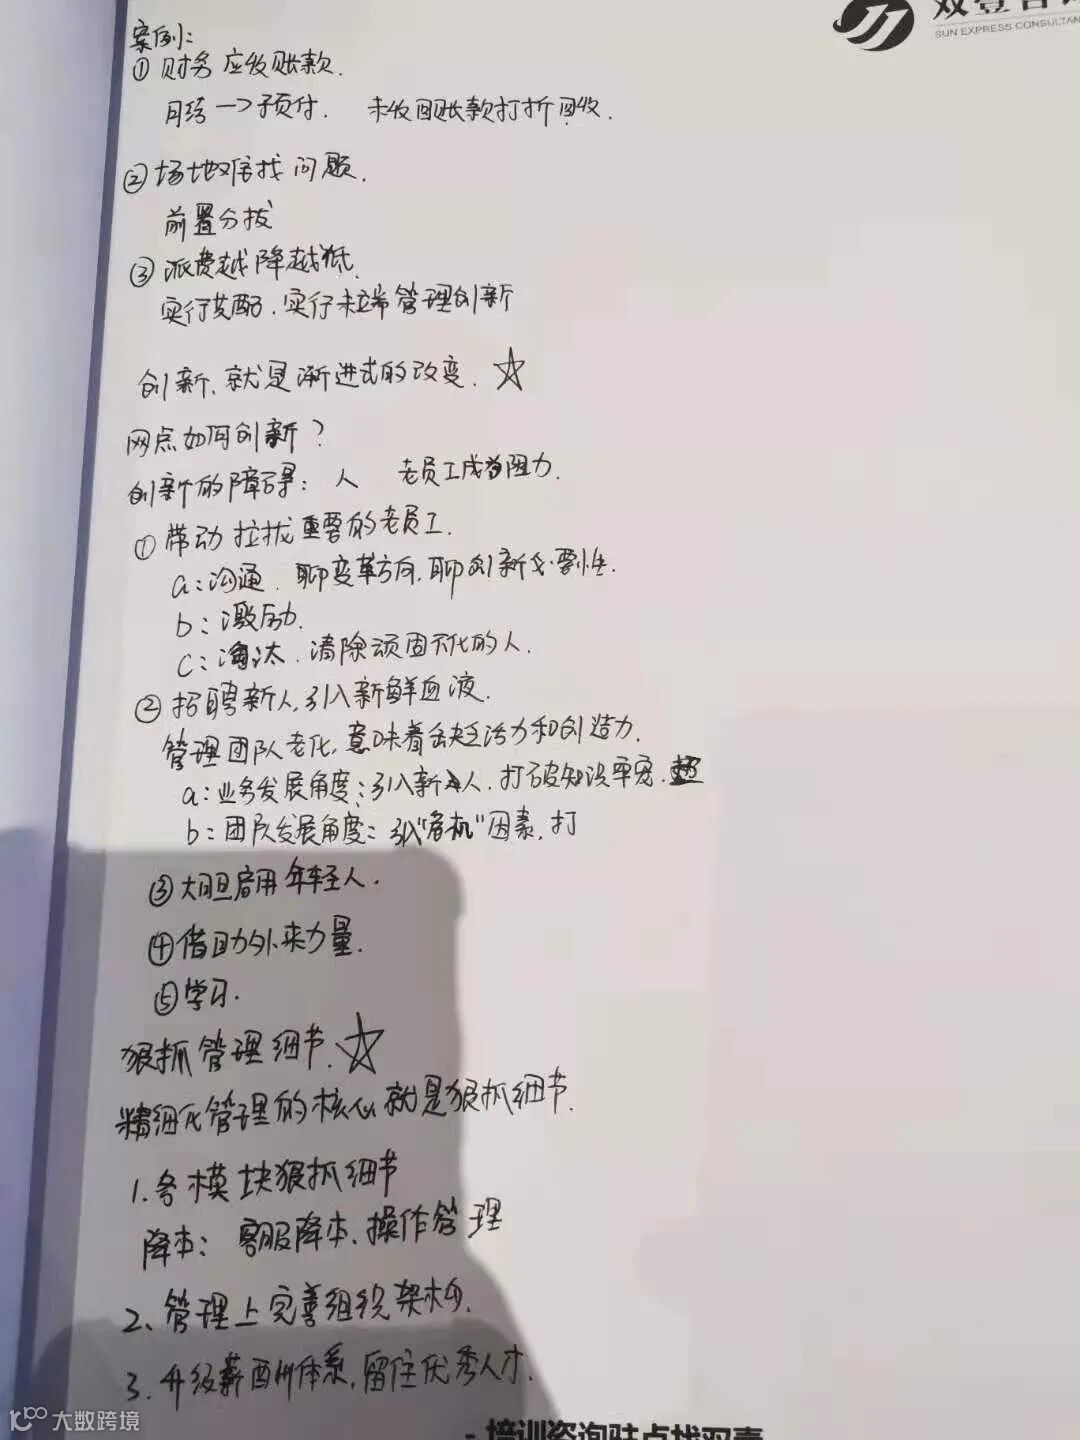 SUN EXPRESS CONSULTAN
案例:
① 财务 应收账款.
月结一>预付. 未收回账款打折回收.
② 场地难找 问题.
前置分拨
③ 派费越降越低.
实行共配. 实行末端管理创新
创新, 就是渐进式的改变. ☆
网点如何创新?
创新的障碍: 人 老员工成为阻力.
① 带动 拉拢 重要的老员工.
a: 沟通. 聊变革方向, 聊创新必要性.
b: 激励.
c: 淘汰. 清除顽固不化的人.
② 招聘新人, 引入新鲜血液.
管理团队老化, 意味着缺乏活力和创造力.
a: 业务发展角度: 引入新人, 打破知识牢笼.
b: 团队发展角度: 引入"危机"因素, 打
③ 大胆启用年轻人.
④ 借助外来力量.
⑤ 学习.
狠抓管理细节. ☆
精细化管理的核心就是狠抓细节.
1. 各模块狠抓细节
降本: 客服降本, 操作管理
2、管理上完善组织架构.
3. 升级薪酬体系, 留住优秀人才.
- 培训咨询驻点找双壹
大数跨境